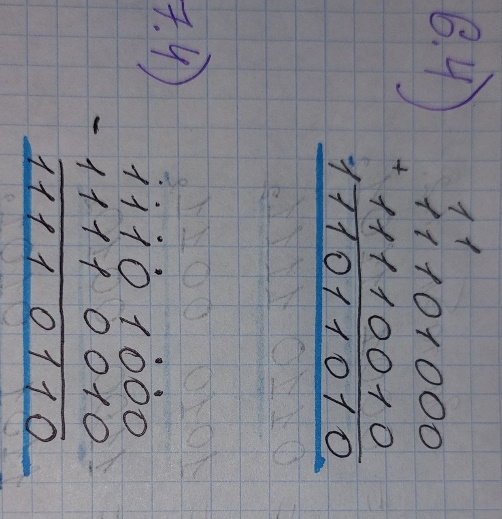 6.4)
1 1
1110 1000
+
1111 0010
1 1101 1010
7.4)
1110 1000
-
1111 0010
1111 0110